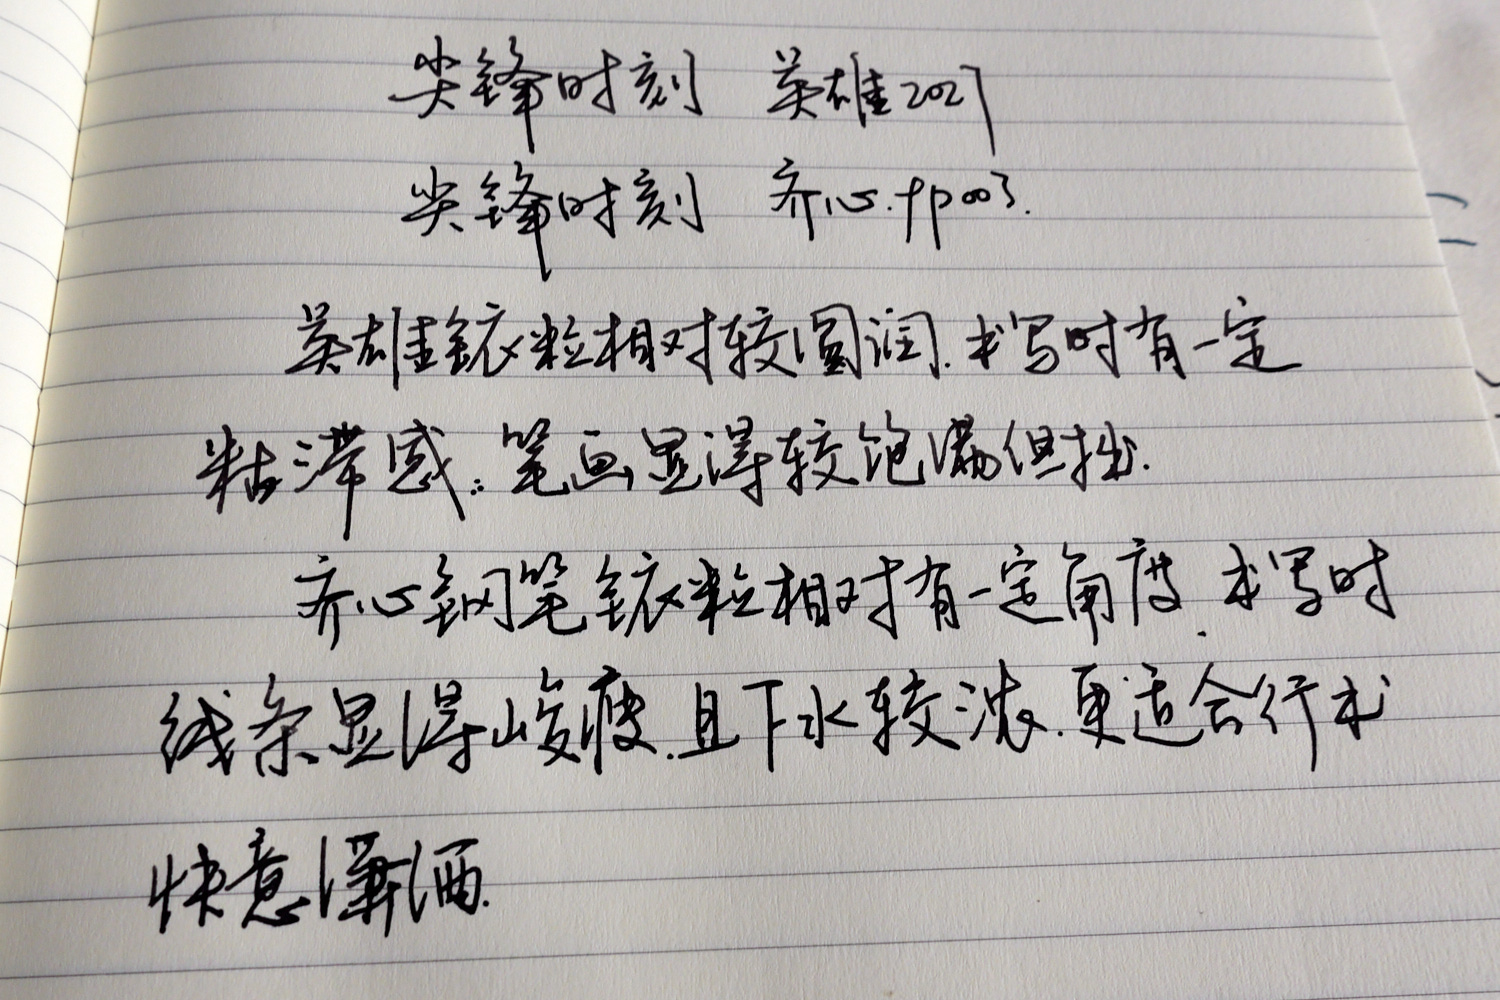 尖锋时刻 英雄2027
尖锋时刻 齐心.fp003.
英雄铱粒相对较圆润.书写时有一定
粘滞感.笔画显得较饱满但拙.
齐心钢笔铱粒相对有一定角度.书写时
线条显得峻瘦.且下水较浓.更适合行书
快意潇洒.